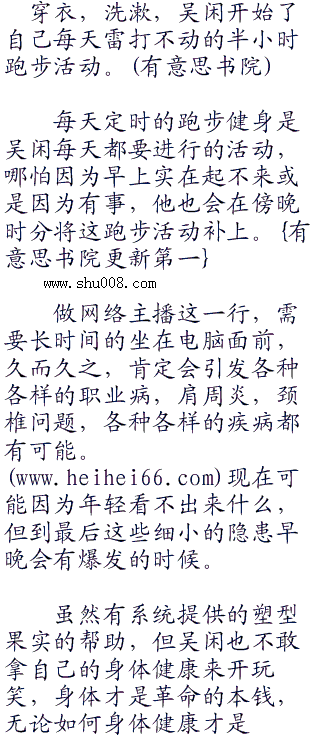 穿衣，洗漱，吴闲开始了
自己每天雷打不动的半小时
跑步活动。(有意思书院)
每天定时的跑步健身是
吴闲每天都要进行的活动，
哪怕因为早上实在起不来或
是因为有事，他也会在傍晚
时分将这跑步活动补上。{有
意思书院更新第一}
www.shu008.com
做网络主播这一行，需
要长时间的坐在电脑面前，
久而久之，肯定会引发各种
各样的职业病，肩周炎，颈
椎问题，各种各样的疾病都
有可能。
(www.heihei66.com)现在可
能因为年轻看不出来什么，
但到最后这些细小的隐患早
晚会有爆发的时候。
虽然有系统提供的塑型
果实的帮助，但吴闲也不敢
拿自己的身体健康来开玩
笑，身体才是革命的本钱，
无论如何身体健康才是